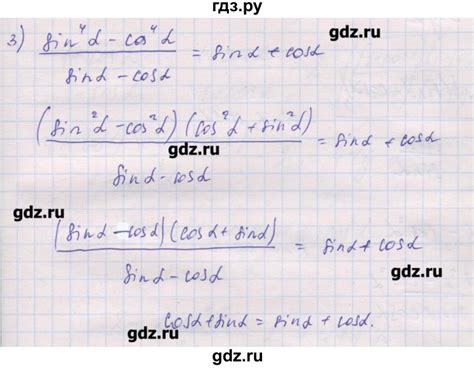 гдз.ру
3) sin⁴α - cos⁴α / sinα - cosα = sinα + cosα
gdz.ru gdz.ru
(sin²α - cos²α) (cos²α + sin²α) / sinα - cosα = sinα + cosα
gdz.ru
gdz.ru
(sinα - cosα) (cosα + sinα) / sinα - cosα = sinα + cosα
gdz.ru gdz.ru
cosα + sinα = sinα + cosα.
gdz.ru
gdz.ru